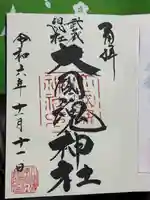 奉拝
武蔵
総社
大國魂神社
令和六年十一月十一日